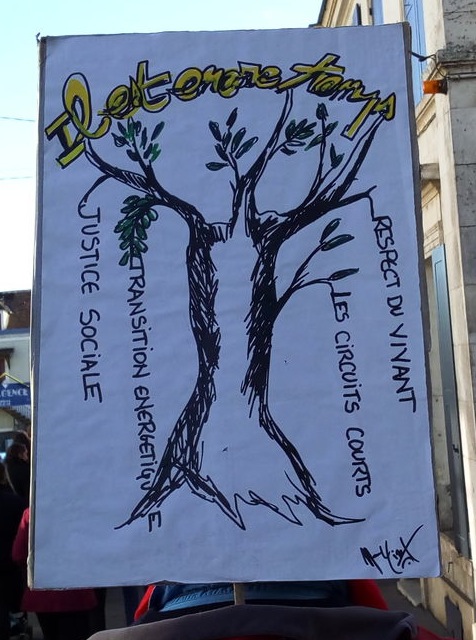 Il est encore temps
JUSTICE SOCIALE
TRANSITION ENERGETIQUE
LES CIRCUITS COURTS
RESPECT DU VIVANT